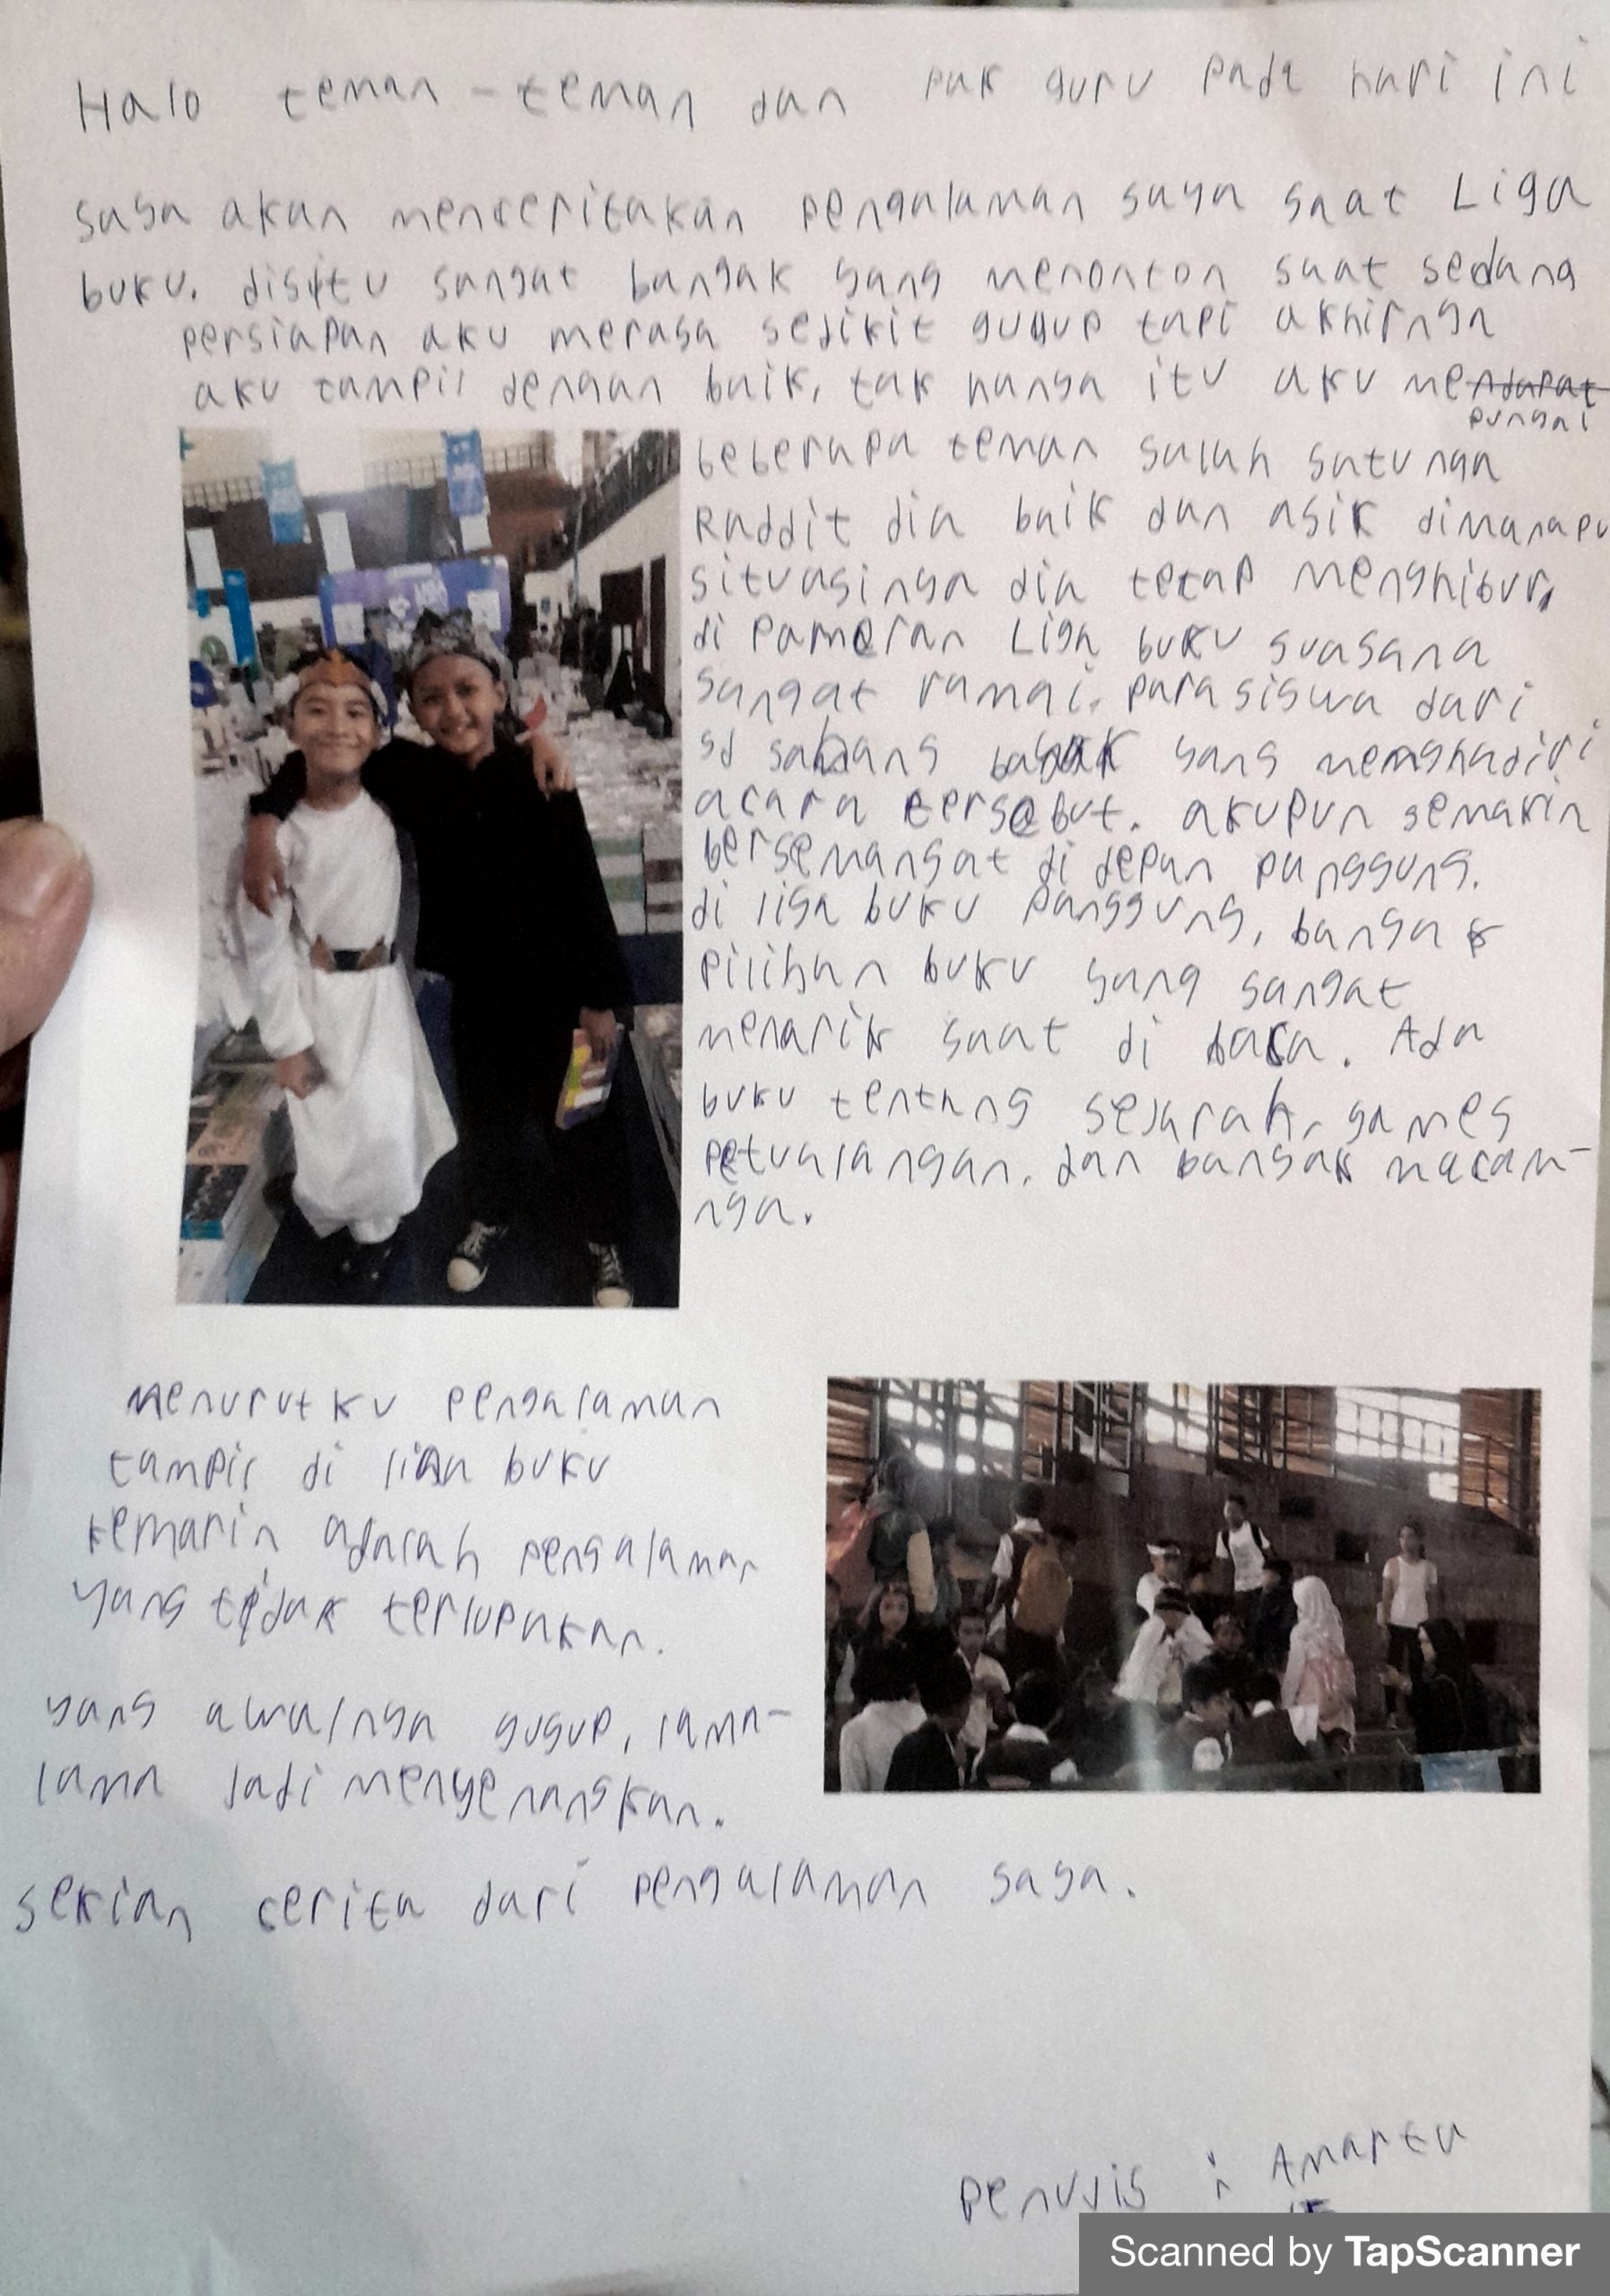 Halo teman-teman dan pak guru pada hari ini
saya akan menceritakan pengalaman saya saat Liga
buku. disitu sangat banyak yang menonton saat sedang
persiapan aku merasa sedikit gugup tapi akhirnya
aku tampil dengan baik, tak hanya itu aku mendapat
punyai
beberapa teman salah satunya
Raddit dia baik dan asik dimanapu
situasinya dia tetap menghibur,
di Pameran Liga buku suasana
sangat ramai. para siswa dari
sd sabang yang menghadiri
acara tersebut. akupun semakin
bersemangat di depan panggung.
di liga buku panggung, banyak
pilihan buku yang sangat
menarik saat di baca. Ada
buku tentang sejarah, games
petualangan, dan banyak macam-
nya.
Menurutku pengalaman
tampil di liga buku
kemarin adalah pengalaman
yang tidak terlupakan.
yang awalnya gugup, lama-
lama jadi menyenangkan.
sekian cerita dari pengalaman saya.
Penulis : Amarta
Scanned by TapScanner